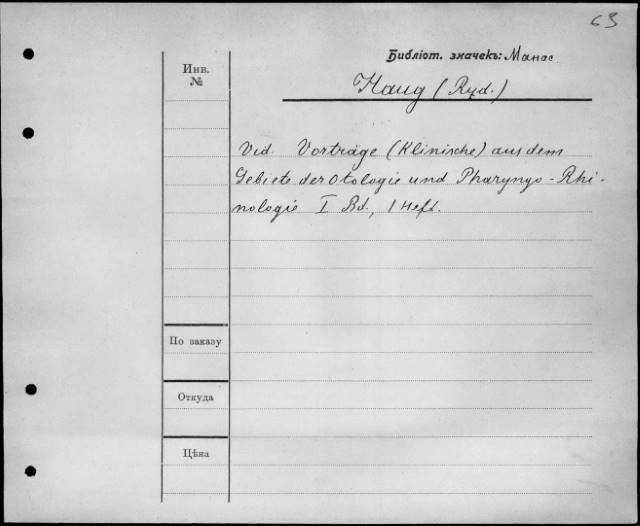 63
Библіот. значекъ: Манас
Инв.
№
Haug (Ryd.)
Vid. Vorträge (Klinische) aus dem
Gebiete der Otologie und Pharyngo-Rhi-
nologie I Bd., 1 Heft.
По заказу
Откуда
Цѣна